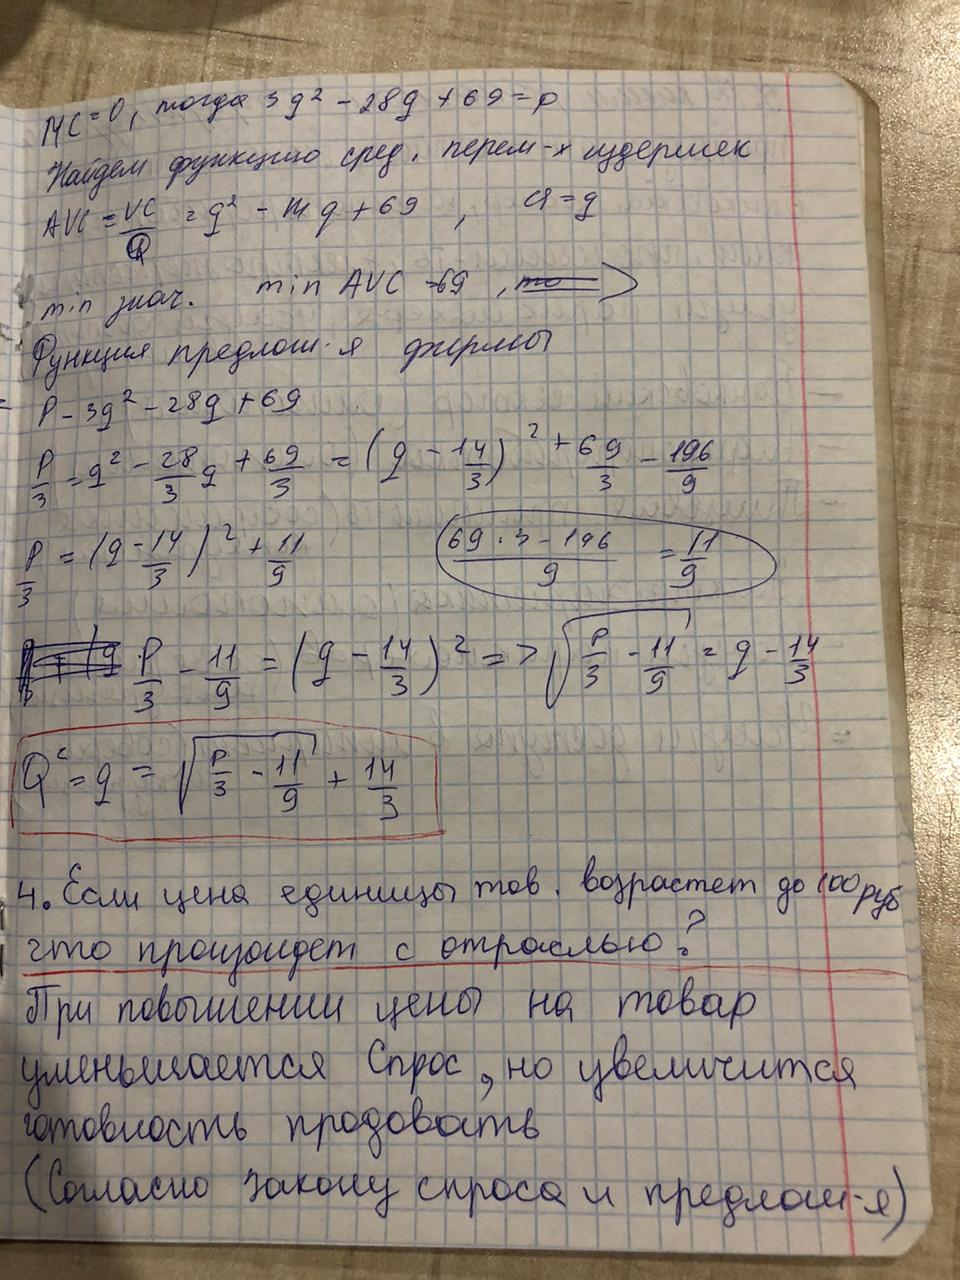 MC = 0, тогда 3q² - 28q + 69 = p
Найдем функцию сред. перем-х издержек
AVC = VC/Q = q² - 14q + 69 , Q = q
min знач. min AVC = 69 ,
Функция предлож-я фирмы
P - 3q² - 28q + 69
P/3 = q² - 28/3 q + 69/3 = (q - 14/3)² + 69/3 - 196/9
P/3 = (q - 14/3)² + 11/9 (69·3 - 196)/9 = 11/9
P/3 - 11/9 = (q - 14/3)² => √(P/3 - 11/9) = q - 14/3
Qˢ = q = √(P/3 - 11/9) + 14/3
4. Если цена единицы тов. возрастет до 100 руб
что произойдет с отраслью?
При повышении цены на товар
уменьшается Спрос, но увеличится
готовность продовать
(Согласно закону спроса и предлож-я)